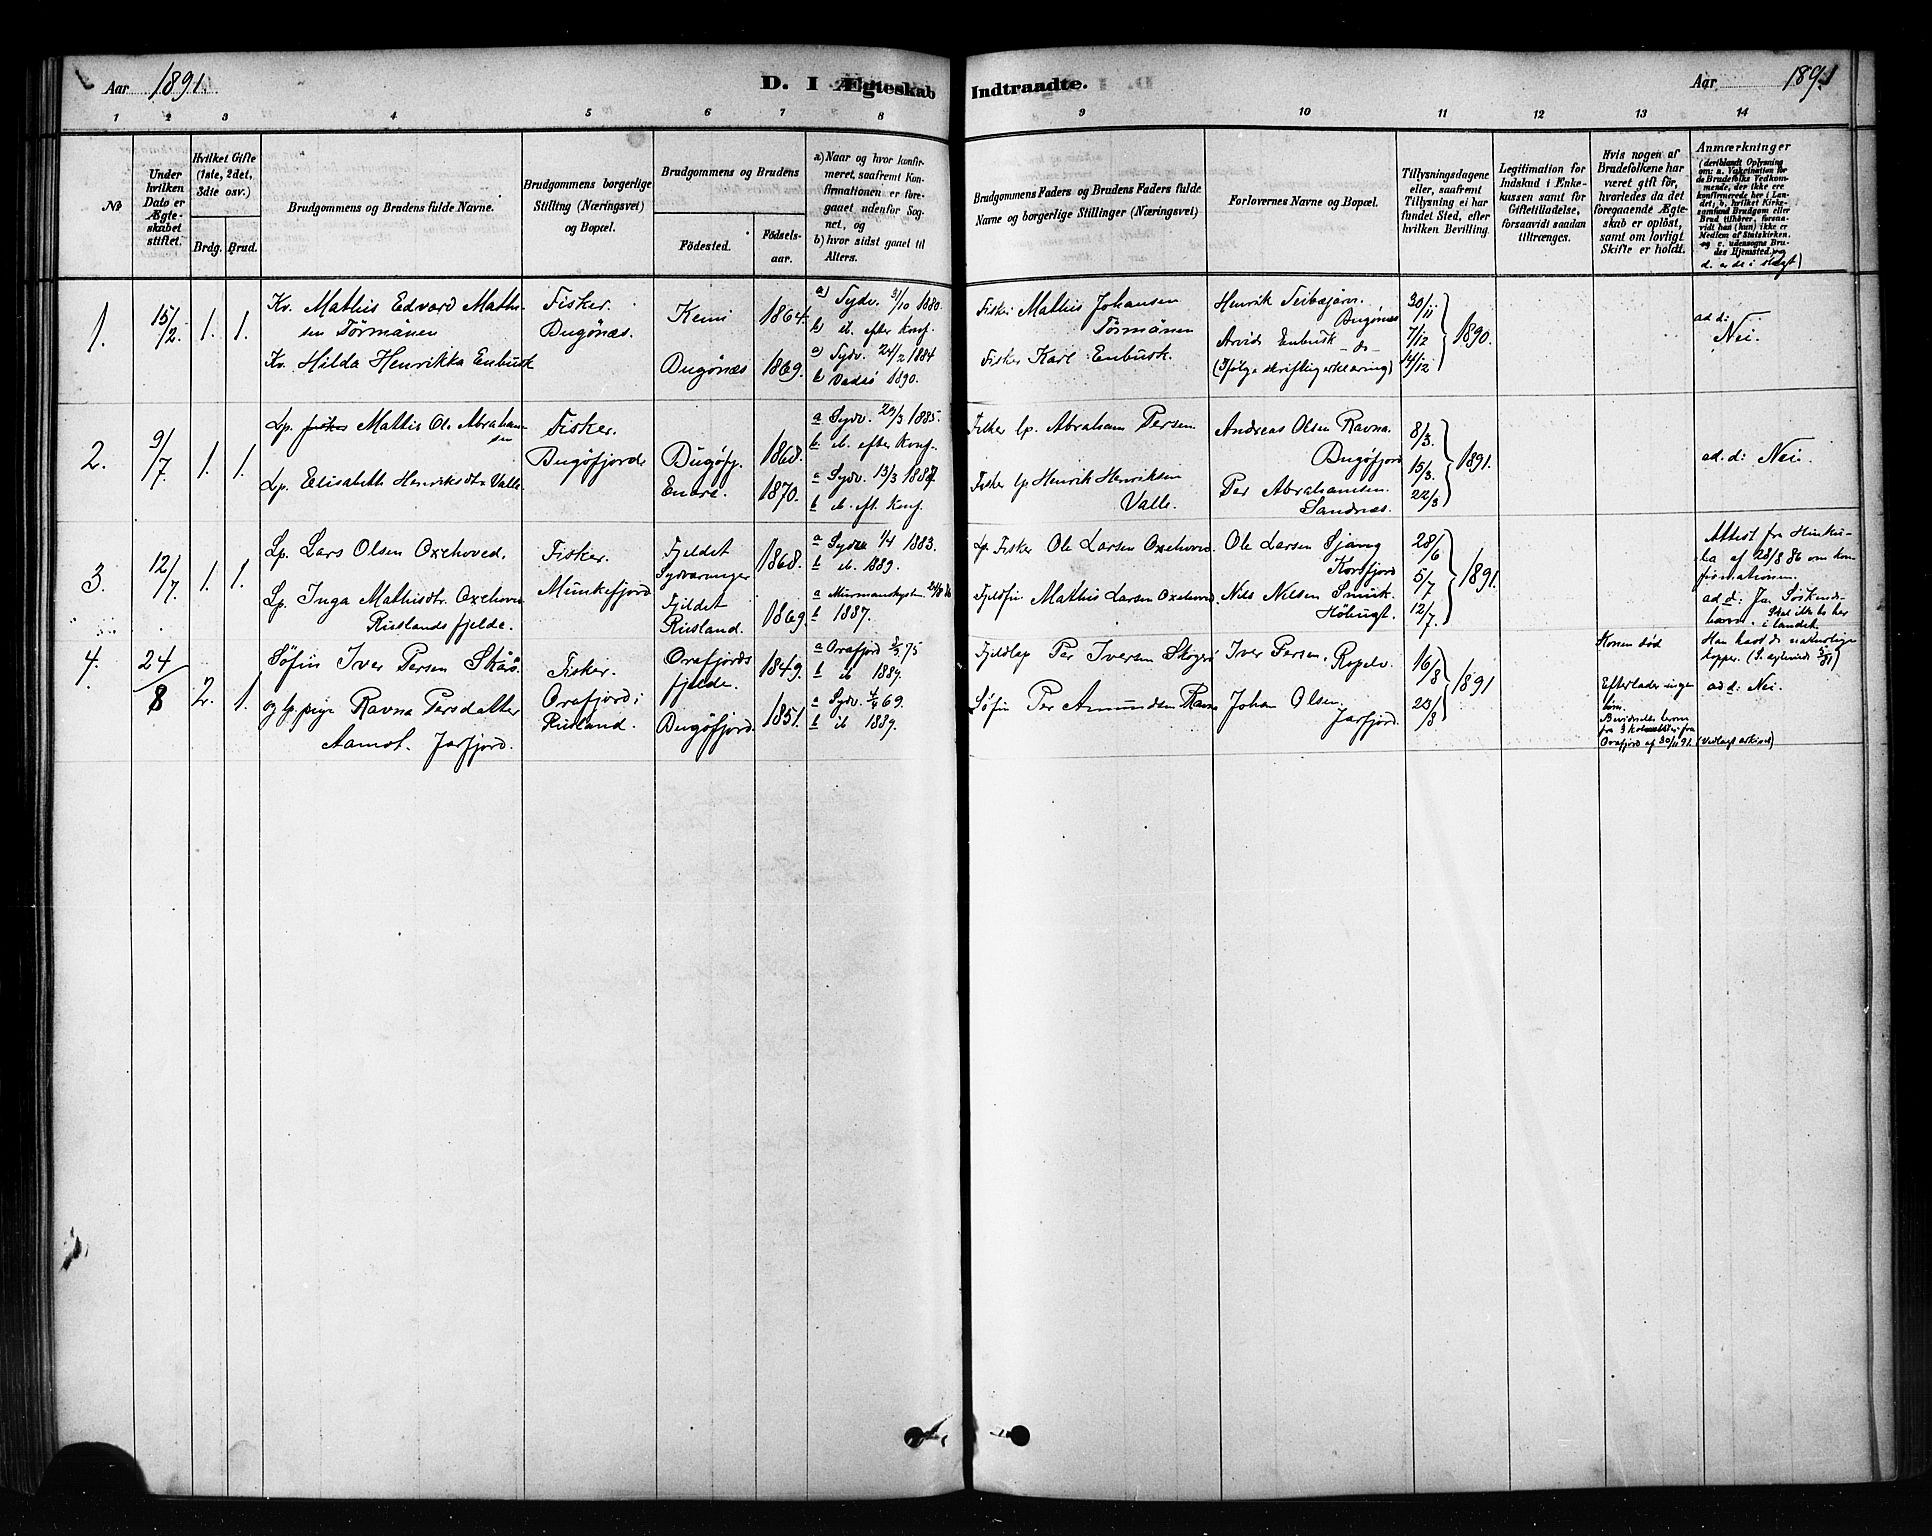 Aar 1891.
D. I Ægteskab Indtraadte.
Aar 1891
1 2 3 4 5 6 7 8 9 10 11 12 13 14
No
Under hvilken Dato er Ægteskabet stiftet.
Hvilket Gifte (1ste, 2det, 3dte osv.)
Brdg. Brud.
Brudgommens og Brudens fulde Navne.
Brudgommens borgerlige Stilling (Næringsvei) og Bopæl.
Brudgommens og Brudens
Födested.
Födselsaar.
a) Naar og hvor konfirmeret, saafremt Konfirmationen er foregaaet udenfor Sognet, og
b) hvor sidst gaaet til Alters.
Brudgommens Faders og Brudens Faders fulde Navne og borgerlige Stillinger (Næringsvei)
Forlovernes Navne og Bopæl.
Tillysningsdagene eller, saafremt Tillysning ei har fundet Sted, efter hvilken Bevilling.
Legitimation for Indskud i Enkekassen samt for Giftetilladelse, forsaavidt saadan tiltrænges.
Hvis nogen af Brudefolkene har været gift før, hvorledes da det foregaaende Ægteskab er oplöst, samt om lovligt Skifte er holdt.
Anmærkninger
(deriblandt Oplysning om: a. Vakcination for de Brudefolks Vedkommende, der ikke ere konfirmerede her i Landet; b. hvilket Kirkesamfund Brudgom eller Brud tilhörer, forsaavidt han (hun) ikke er Medlem af Statskirken. og c. udensogns Brudes Hjemsted. og d. er de i slægt)
1. 15/2 1. 1.
Kv. Mathis Edvard Mathisen Törmänen
Kv. Hilda Henrikka Enbusk
Fisker. Bugönæs.
Kemi 1864.
Bugönæs 1869.
a) Sydv. 3/10 1880.
b) ib. efter Konf.
a) Sydv. 24/2 1884
b) Vadsö 1890.
Fisker Mathis Johansen Törmänen
Fisker Karl Enbusk.
Henrik Seibæjärvi. Bugönæs
Arvid Enbusk - do -
(Ifølge skriftlig erklæring)
30/11 7/12 14/12 } 1890.
ad d: Nei.
2. 9/7. 1. 1.
Lp. Mathis Ol. Abrahamsen
Lp. Elisabeth Henriksdtr Valle.
Fisker. Bugöfjord
Bugöfj. 1868.
Enare. 1870.
a Sydv. 29/3 1885.
b ib. efter Konf.
a Sydv. 13/3 1887
b ib. eft. Konf.
Fisker lp. Abraham Persen
Fisker lp Henrik Henriksen Valle.
Andreas Olsen Ravna. Bugöfjord
Per Abrahamsen. Sandnæs.
8/3. 15/3. 22/3 } 1891.
ad. d: Nei.
3. 12/7. 1. 1.
Lp. Lars Olsen Oxehoved.
Lp. Inga Mathisdtr. Oxehoved Ruslands fjelde.
Fisker. Munkefjord
Fjeldet Sydvaranger 1868.
Fjeldet Rusland. 1869.
a Sydv 1/4 1883.
b ib. 1889.
a Murmanskyst
b 1887.
Lp. Fisker Ole Larsen Oxehoved.
Fjeldfin Mathis Larsen Oxehoved.
Ole Larsen Sjang Korsfjord
Nils Nilsen Smuk. Höbugt.
28/6 5/7 12/7 } 1891.
Attest fra
af 28/8 86 om konfirmationen.
ad d: Ja Söskendebarn. Skal ikke bo her i landet.
4. 24/8 2. 1.
Söfin Iver Persen Skåö.
og lp. pige Ravna Persdatter Aamot. Jarfjord.
Fisker. Orafjord i Rusland.
Orafjords fjelde. 1849.
Bugöfjord 1851.
a Orafjord 75
b ib 1887.
a Sydv. 69.
b ib 1889.
Fjeldlap Per Iversen Skogerö
Söfin Per Amundsen Ravna
Iver Persen. Ropelv.
Johan Olsen. Jarfjord.
16/8 23/8 } 1891
Konen död
Efterlader ingen börn.
Bevidnelse herom fra 3 kolonister fra Orafjord af 30/11 91.
Han havde naturlige kopper.
ad d: Nei.
(Vedlagt arkivet)